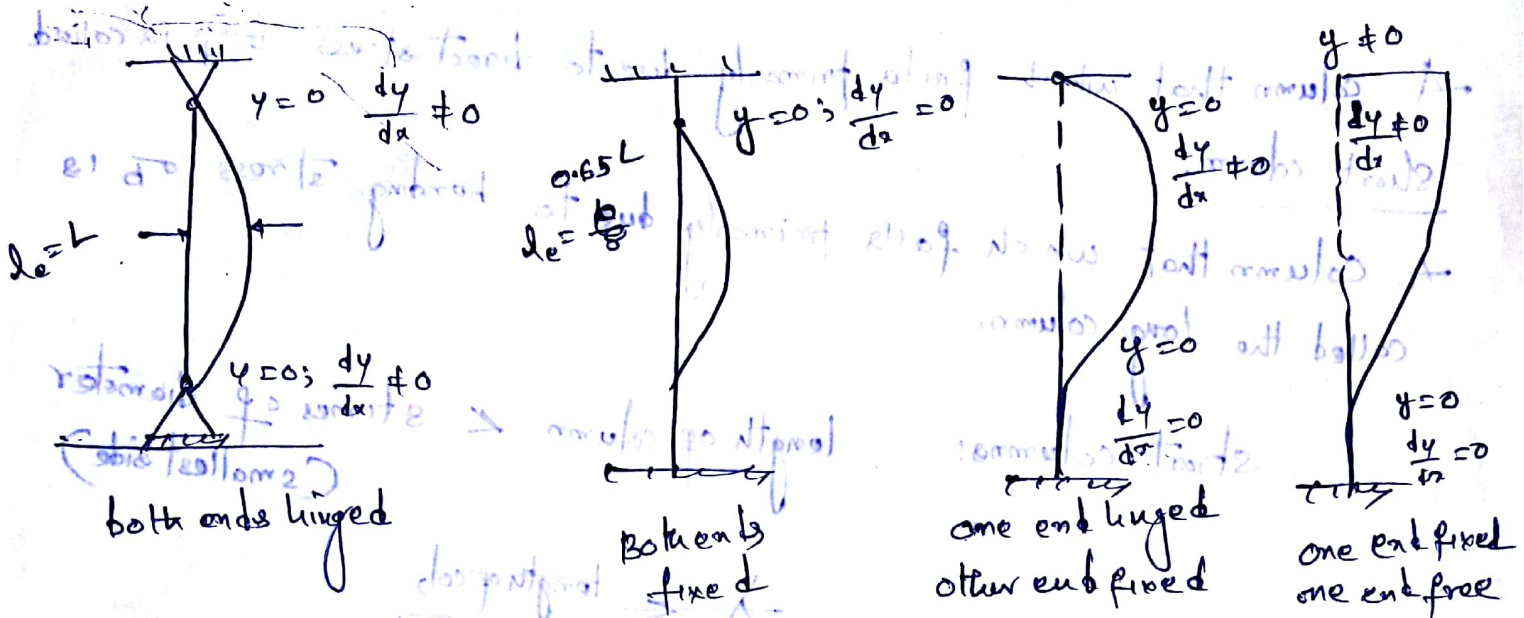 y = 0 dy/dx ≠ 0
le = L
y = 0; dy/dx ≠ 0
both ends hinged
y = 0; dy/dx = 0
0.65L
le =
Both ends
fixed
y = 0
dy/dx ≠ 0
y = 0
dy/dx = 0
one end hinged
other end fixed
y ≠ 0
dy/dx ≠ 0
y = 0
dy/dx = 0
one end fixed
one end free